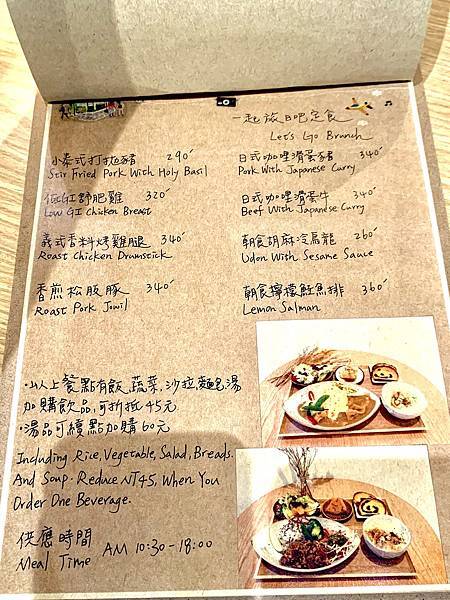 一起旅日吧定食
Let's Go Brunch
小泰式打拋豬 290
Stir Fried Pork With Holy Basil
低GI舒肥雞 320
Low GI Chicken Breast
義式香料烤雞腿 340
Roast Chicken Drumstick
香煎松阪豚 340
Roast Pork Jowl
日式咖哩滑蛋豬 340
Pork With Japanese Curry
日式咖哩滑蛋牛 340
Beef With Japanese Curry
朝食胡麻冷烏龍 260
Udon With Sesame Sauce
朝食檸檬鮭魚排 360
Lemon Salman
·以上餐點有飯,蔬菜,沙拉,麵包,湯
加購飲品,可折扣45元
·湯品可續點加購60元
Including Rice, Vegetable, Salad, Breads.
And Soup. Reduce NT45, When You
Order One Beverage.
供應時間
Meal Time AM 10:30-18:00